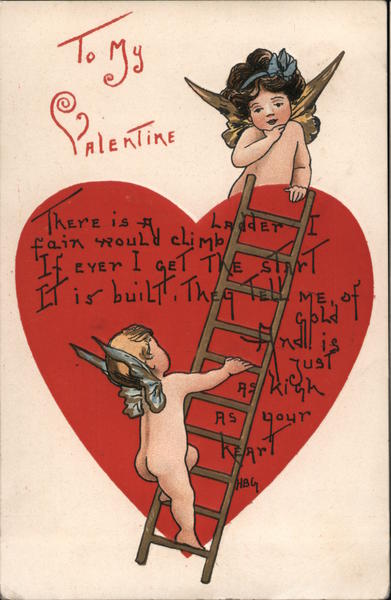 To My
Valentine
There is a Ladder I
fain would climb
If ever I get the start
It is built, they tell me, of
gold
And is
just
as high
as your
heart
HBG